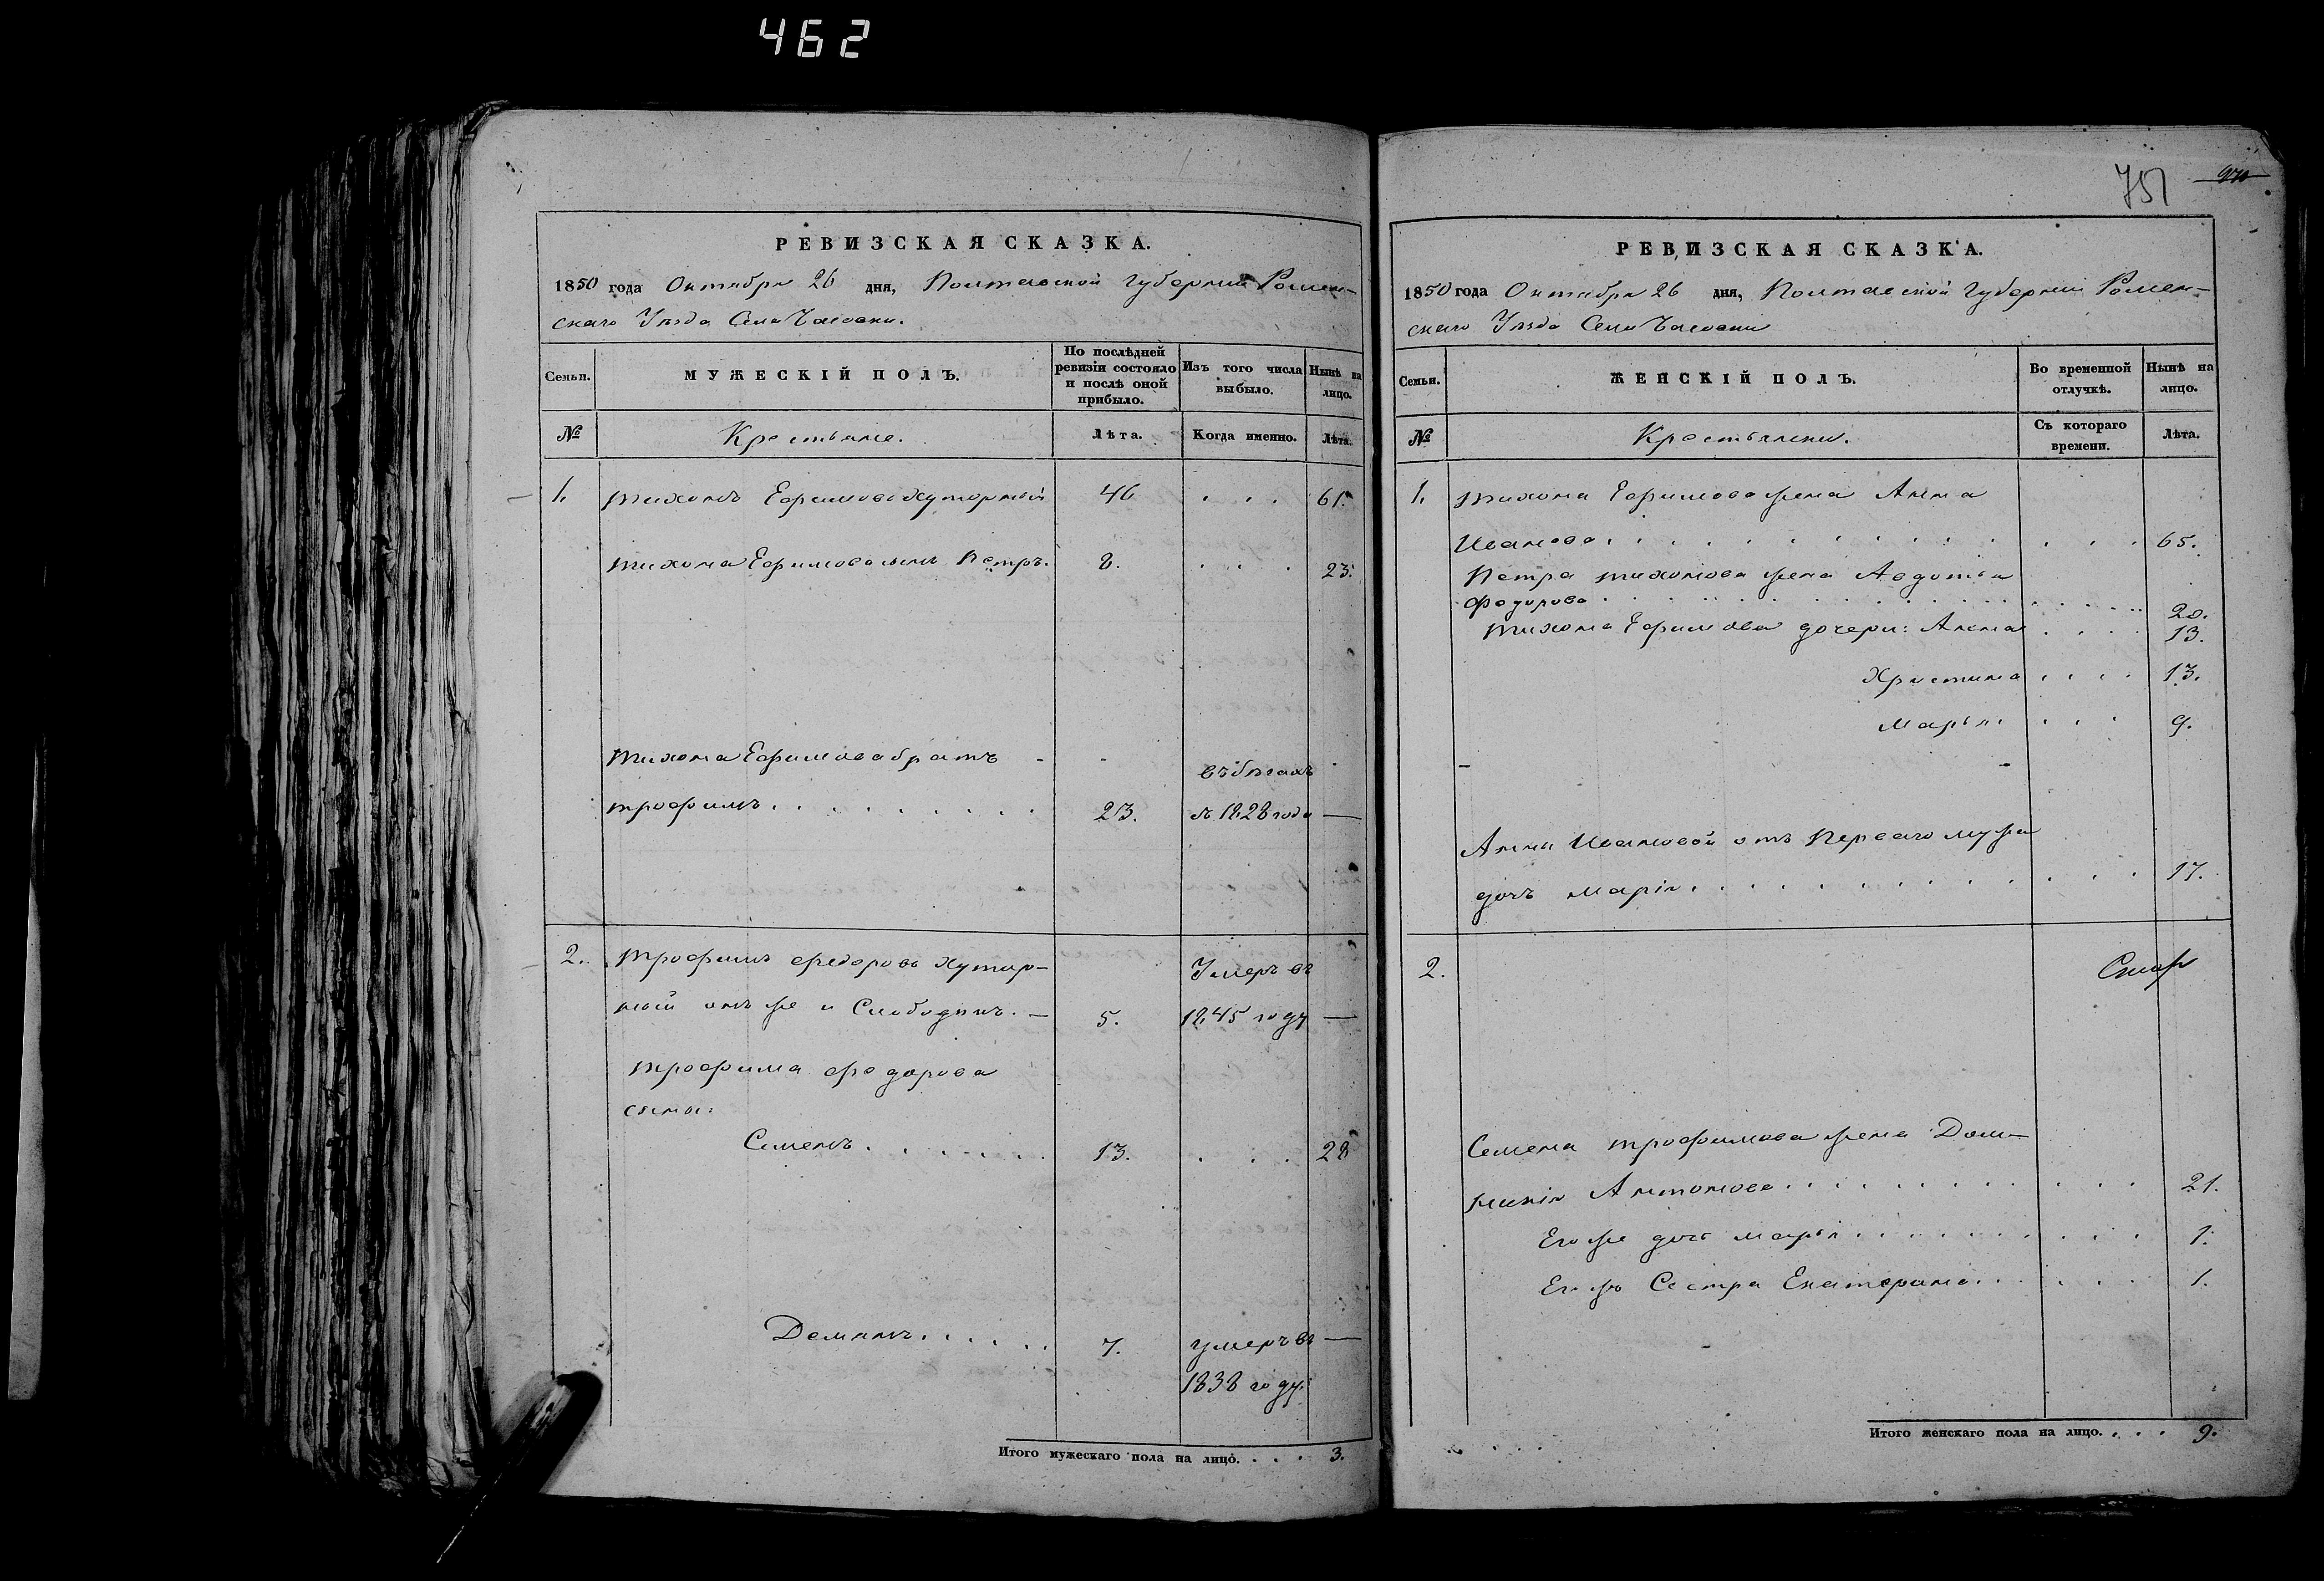 462
РЕВИЗСКАЯ СКАЗКА.
1850 года Октября 26 дня, Полтавской Губернии Ромен-
скаго Уѣзда Села
Семьи.
МУЖЕСКІЙ ПОЛЪ.
По послѣдней ревизіи состояло и послѣ оной прибыло.
Изъ того числа выбыло.
Нынѣ на лицо.
№
Крестьяне.
Лѣта.
Когда именно.
Лѣта.
1. Тихонъ Ефимовъ Хуторный 46 . . . 61.
Тихона Ефимова сынъ Петръ. 8. . . . 23.
Тихона Ефимова братъ - - въ бѣгахъ
трофимъ . . . . . . . . . 23. съ 1828 года —
2. Трофимъ федоровъ Хутор- Умеръ въ
ный онъ же и Слободянъ. — 5. 1845 году —
трофима федорова
сыны:
Семенъ . . . . . . 13. . . . 28
Демянъ . . . . . . 7. умеръ въ —
1838 году.
Итого мужескаго пола на лицо. . . . 3.
751 970
РЕВИЗСКАЯ СКАЗКА.
1850 года Октября 26 дня, Полтавской Губерніи Ромен-
скаго Уѣзда Села
Семьи.
ЖЕНСКІЙ ПОЛЪ.
Во временной отлучкѣ.
Нынѣ на лицо.
№
Крестьянки.
Съ котораго времени.
Лѣта.
1. Тихона Ефимова жена Анна
Иванова . . . . . . . . . . . . 65.
Петра тихонова жена Авдотья
федорова . . . . . . . . . . . . 20.
Тихона Ефимова дочери: Анна . . . . 13.
Христина . . . . 13.
Марья . . . 9.
Анны Ивановой отъ Перваго мужа
дочь Марія . . . . . . . . . . . . 17.
2.
Семена трофимова жена Дом-
никія Антонова . . . . . . . . . . . 21.
Его же дочь марья . . . . . . . . . . 1.
Его жъ Сестра Екатерина . . . . . . 1.
Итого женскаго пола на лицо. . . . 9.